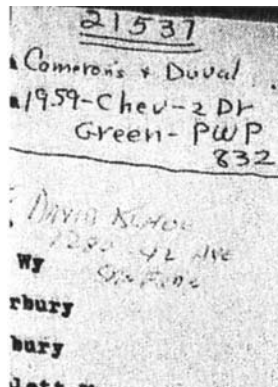 21537
Cameron's + Duval
1959-Chev-2 Dr
Green-PWP
832
DAVID
42 Ave
Wy
rbury
bury